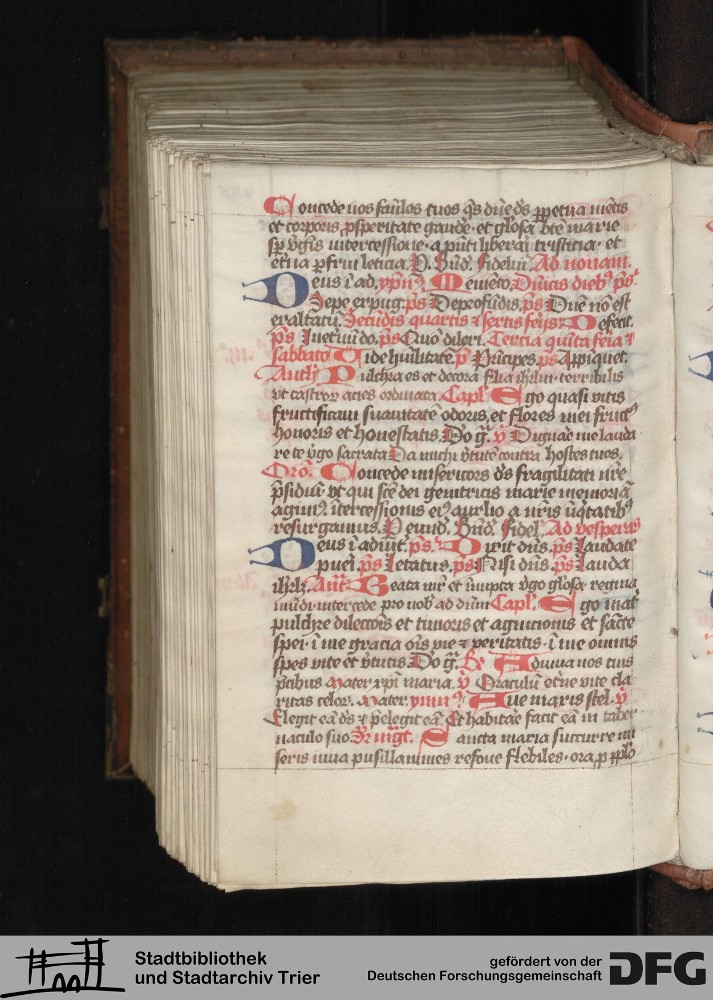 Concede nos famlos tuos qs dne ds ppetua metis
et corporis psperitate gaude · et glosa bte marie
sp vgis intercessione · a pnti liberai tristicia · et
etna pfrui leticia P. Bnd. fidelin. Ad nonam.
Deus i ad. ypn⁹. Memeto. Dnicis dieb⁹ ps⁹
Sepe expug. ps Deprofudis. ps Dne no est
exaltatu. Secudis quartis et sextis ferijs. Defecit.
ps In couerdo. ps Quo dilexi. Tercia quita feria et
sabbato Vide huilitate. p Principes. ps Appiquet.
Anth Pulchra es et decora filia ihrlm · terribilis
vt castrorum acies ordinata. Capl. Ego quasi vitis
fructificaui suauitate odoris. et flores mei fruct⁹
honoris et honestatis. Do g. v Dignare me lauda
re te vgo sacrata Da michi vtute contra hostes tuos.
Oro. Concede misericors ds fragilitati nre
psidiu · vt qui scte dei genitricis marie memoria
agim⁹. itercessionis ei⁹ auxilio a nris iiqtatib⁹
resurgamus. P eund. Bnd. fidel. Ad vesperas
Deus i adiut. ps. Dixit dns. ps Laudate
puei. ps Letatus. ps Nisi dns. ps Lauda
ihrlm. Ant. Beata mr et innupta vgo glosa regina
mudi intercede pro nob ad dnm Capl. Ego mat
pulchre dilectois et timoris et agnicionis et sacte
spei · i me gracia ois vie et veritatis · i me omnis
spes vite et vtutis. Do g. R Adiuua nos tuis
pcibus Mater xpi maria. v Oraculu etne vite cla
ritas celor. Mater. ymn⁹. Aue maris stel. v
Elegit ea ds et pelegit ea Et habitare facit ea in taber
naculo suo. Ad mgt. Sancta maria succurre mi
seris iuua pusillanimes refoue flebiles · ora p pplo
Stadtbibliothek
und Stadtarchiv Trier
gefördert von der
Deutschen Forschungsgemeinschaft
DFG